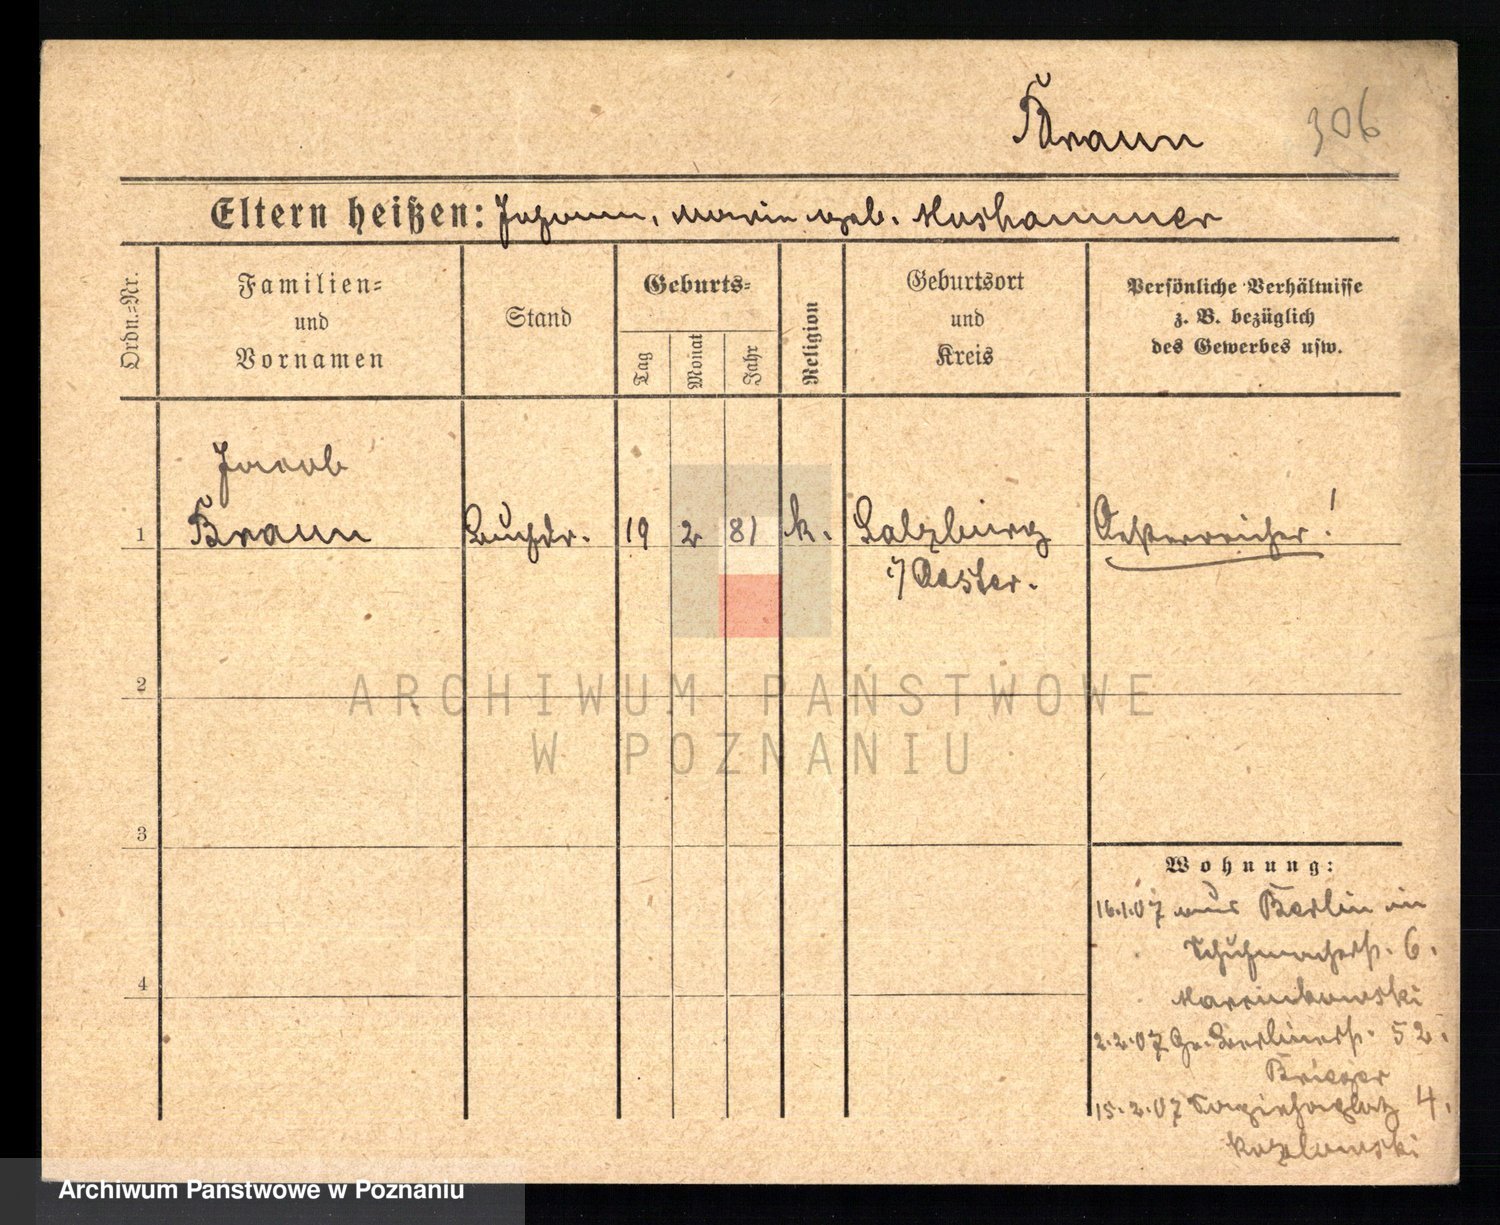 Braun
306
Eltern heißen: Johann, Marie geb. Moshammer
Ordn.-Nr.
Familien-
und
Vornamen
Stand
Geburts-
Tag
Monat
Jahr
Religion
Geburtsort
und
Kreis
Persönliche Verhältnisse
z. B. bezüglich
des Gewerbes usw.
Jacob
1 Braun Buchdr. 19 2 81 k. Salzburg Oesterreicher!
i/ Oester.
2
ARCHIWUM PAŃSTWOWE
W POZNANIU
3
Wohnung:
16.1.07 aus Berlin in
Schuhmacherstr. 6.
2.2.07 Gr. Berlinerstr. 52.
4
Brieger
15.2.07 Sapiehaplatz 4.
Kozlowski
Archiwum Państwowe w Poznaniu